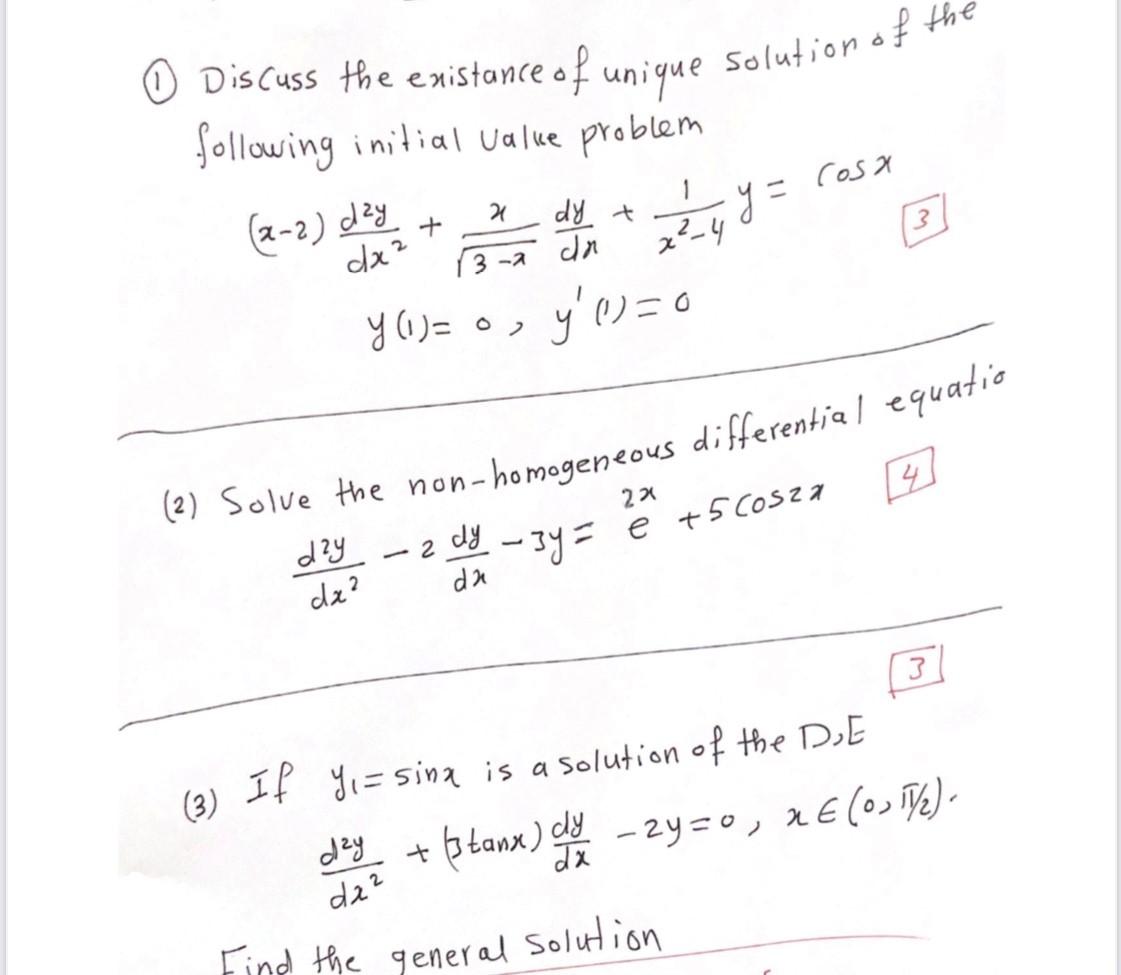 ① Discuss the existance of unique solution of the
following initial value problem
(x-2) d²y/dx² + x/√(3-x) dy/dx + 1/(x²-4) y = cos x
3
y(1)= 0, y'(1)=0
(2) Solve the non-homogeneous differential equatio
4
d²y/dx² - 2 dy/dx - 3y = e^2x + 5 cos2x
3
(3) If y₁= sinx is a solution of the D,E
d²y/dx² + (3tanx) dy/dx - 2y=0, x ∈ (0, π/2).
Find the general solution